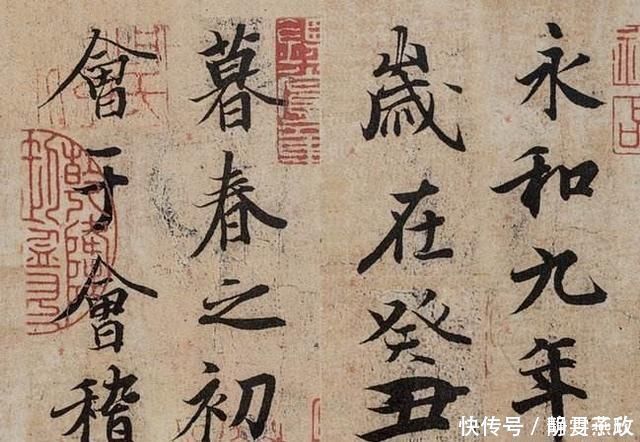 永和九年
歲在癸丑
暮春之初
會于會稽
快传号／静夏燕欧